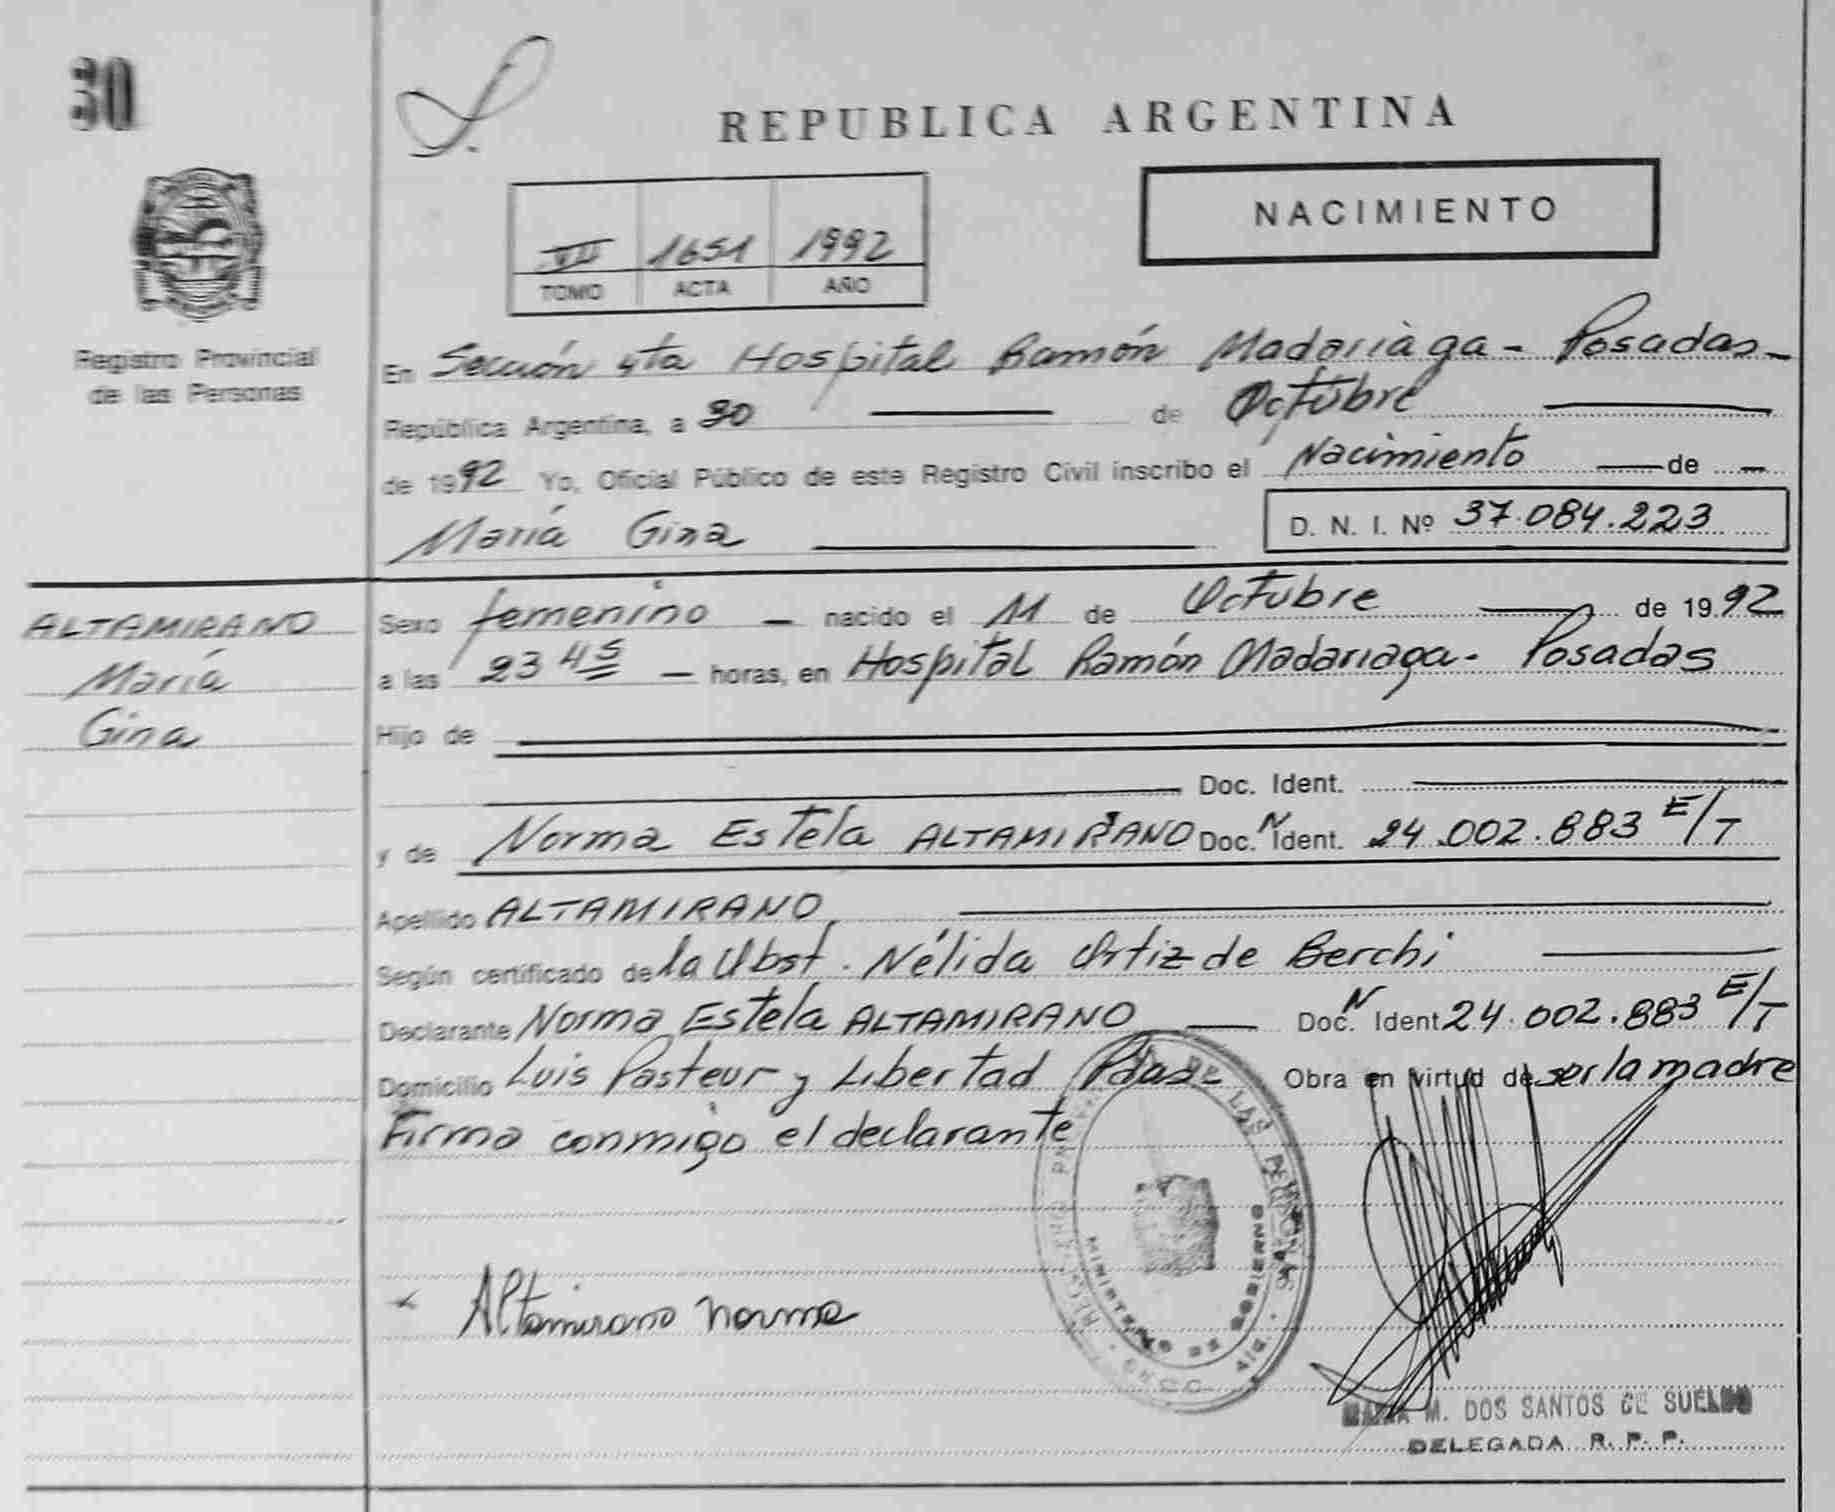 30
REPUBLICA ARGENTINA
NACIMIENTO
VII 1651 1992
TOMO ACTA AÑO
Registro Provincial
de las Personas
En Sección 4ta Hospital Ramón Madariaga - Posadas -
República Argentina, a 30 de Octubre
de 1992 Yo, Oficial Público de este Registro Civil inscribo el Nacimiento de
María Gina D. N. I. Nº 37.084.223
ALTAMIRANO
María
Gina
Sexo femenino nacido el 11 de Octubre de 1992
a las 23 45 horas, en Hospital Ramón Madariaga - Posadas
Hijo de
Doc. Ident.
y de Norma Estela ALTAMIRANO Doc. N Ident. 24.002.883 E/T
Apellido ALTAMIRANO
Según certificado de la Obst. Nélida Ortiz de Berchi
Declarante Norma Estela ALTAMIRANO Doc. N Ident 24.002.883 E/T
Domicilio Luis Pasteur y Libertad Pdas. Obra en virtud de ser la madre
Firma conmigo el declarante
DE LAS PERSONAS
MINISTERIO DE GOBIERNO
Altamirano Norma
M. DOS SANTOS DE SUELDO
DELEGADA R. P. P.